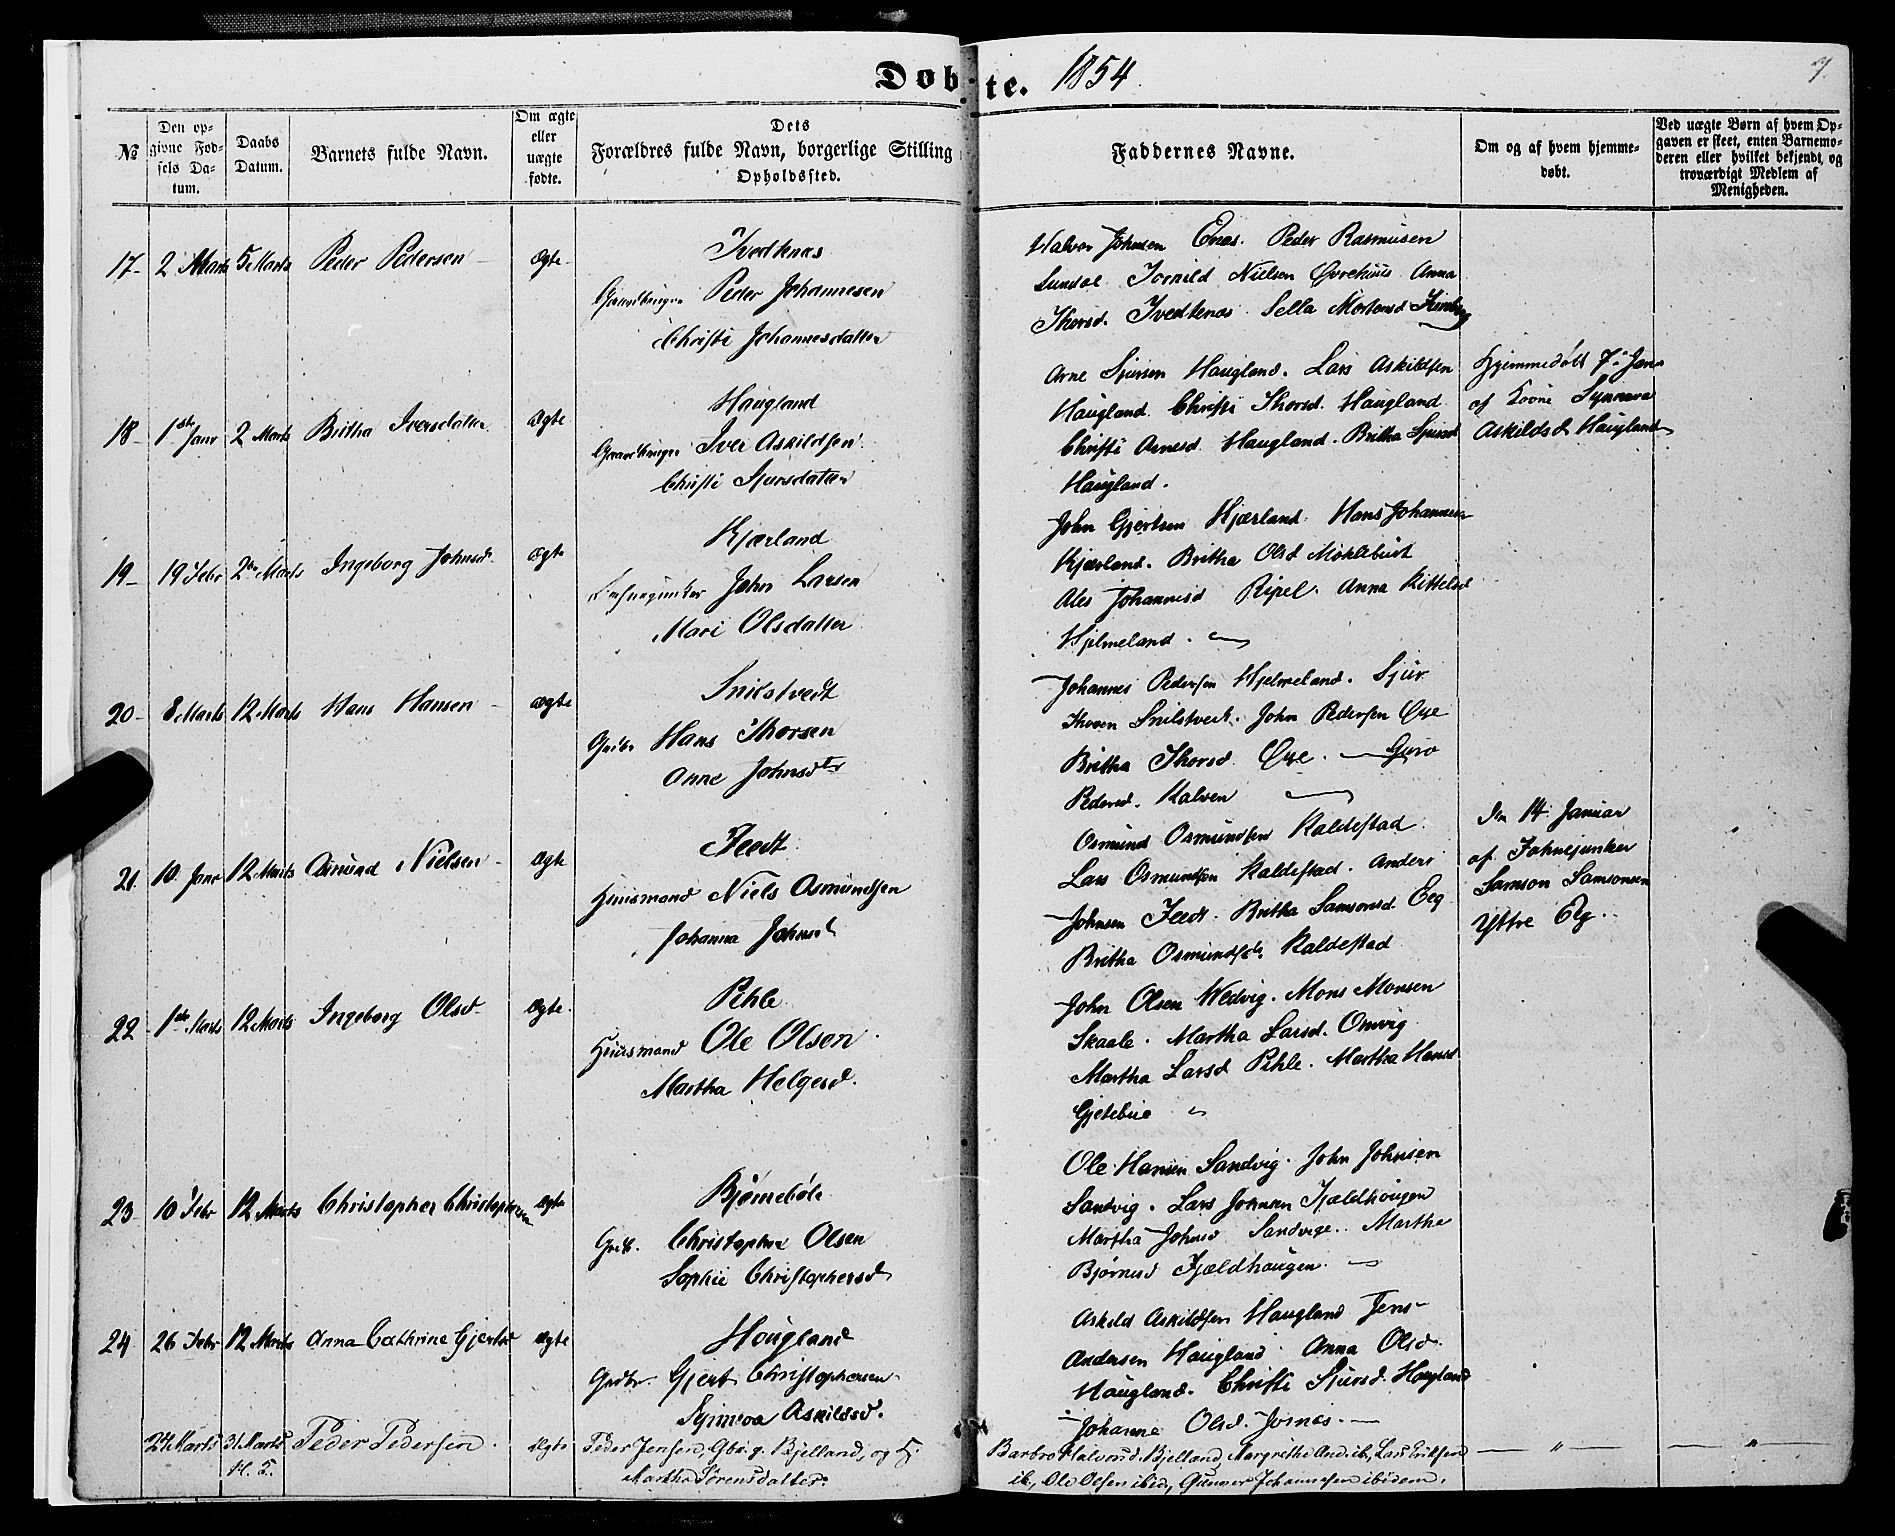 Døbte. 1854
7.
№
Den opgivne Fødsels Datum.
Daabs Datum.
Barnets fulde Navn.
Om ægte eller uægte fødte.
Dets Forældres fulde Navn, borgerlige Stilling
Opholdssted.
Faddernes Navne.
Om og af hvem hjemmedøbt.
Ved uægte Børn af hvem Opgaven er skeet, enten Barnemoderen eller hvilket bekjendt, og troværdigt Medlem af Menigheden.
17 - 2 Marts 5 Marts Peder Pedersen - ægte
Tvedtenæs
Peder Johannesen
Christi Johannesdatter
Halvor Johnsen Enæs. Peder Rasmusen
Nielsen Anna
Thorsd. Tvedtenæs Sella Mortensd
18 - 1ste Janr 2 Marts Britha Iversdatter ægte
Haugland
Iver Askildsen
Christi Sjursdatter
Arne Sjursen Haugland. Lars Askildsen
Haugland Christi Thorsd. Haugland
Christi Arnesd. Haugland. Britha Sjursd
Haugland.
Hjemmedøbt 7de Janr
af Kone Synneva
Askildsd Haugland
19 - 19 Febr 2den Marts Ingeborg Johnsd. ægte
Kjærland
John Larsen
Mari Olsdatter
John Gjertsen Kjærland. Hans Johannesen
Kjærland. Britha Olsd Mokleburst
Ales Johannesd Ripel. Anna Kittelsd
Hjelmeland.
20 - 8 Marts 12 Marts Hans Hansen - ægte
Snilstvedt
Grdbr Hans Thorsen
Anne Johnsdtr
Johannes Pedersen Hjelmeland. Sjur
Snilstvedt. John Pedersen Øye
Britha Thorsd. Øye. - Guro
Pedersd. Kalven
21. 10 Janr 12 Marts Osmund Nielsen - ægte
Feedt
Huusmand Niels Osmundsen
Johanna Johnsd
Osmund Osmundsen Kaldestad.
Lars Osmundsen Kaldestad. Anders
Johnsen Feedt. Britha Samsonsd. Eeg
Britha Osmundsd. Kaldestad
Dn 14 Januar
af Fahnejunker
Samson Samsonsen
Yttre Eg.
22 - 1ste Marts 12 Marts Ingeborg Olsd - ægte.
Pihle
Huusmand Ole Olsen
Martha Helgesd.
John Olsen Wedvig. Mons Monsen
Skaale. Martha Larsd. Omvig
Martha Larsd Pihle. Martha Hansd
Gjetebøe
23 - 10 Febr 12 Marts Christopher Christophersen ægte
Bjørnebøle
Grdb. Christopher Olsen
Sophie Christophersd
Ole Hansen Sandvig. John Johnsen
Sandvig. Lars Johnsen Fjældhaugen
Martha Johnsd Sandvigen. Martha
Bjørnesd Fjældhaugen -
24 26 Febr 12 Marts Anna Cathrine Gjertsd ægte
Haugland
Grdbr. Gjert Christophersen
Synneva Askildsd.
Askild Askildsen Haugland Jens
Andersen Haugland. Anna Olsd.
Haugland. Christi Sjursd. Haugland
Johanne Olsd. Jernæs. -
24 Marts 31 Marts Peder Pedersen. ægte Peder Jensen, Gbr. g. Bjelland, og H.
H. T. Martha Sørensdatter.
Barbro Halvorsd. Bjelland, Margrethe And. ib., Lars Eriksen
ib., Ole Olsen ibid., Gunner Johannesen ibidem.
- " - - " -